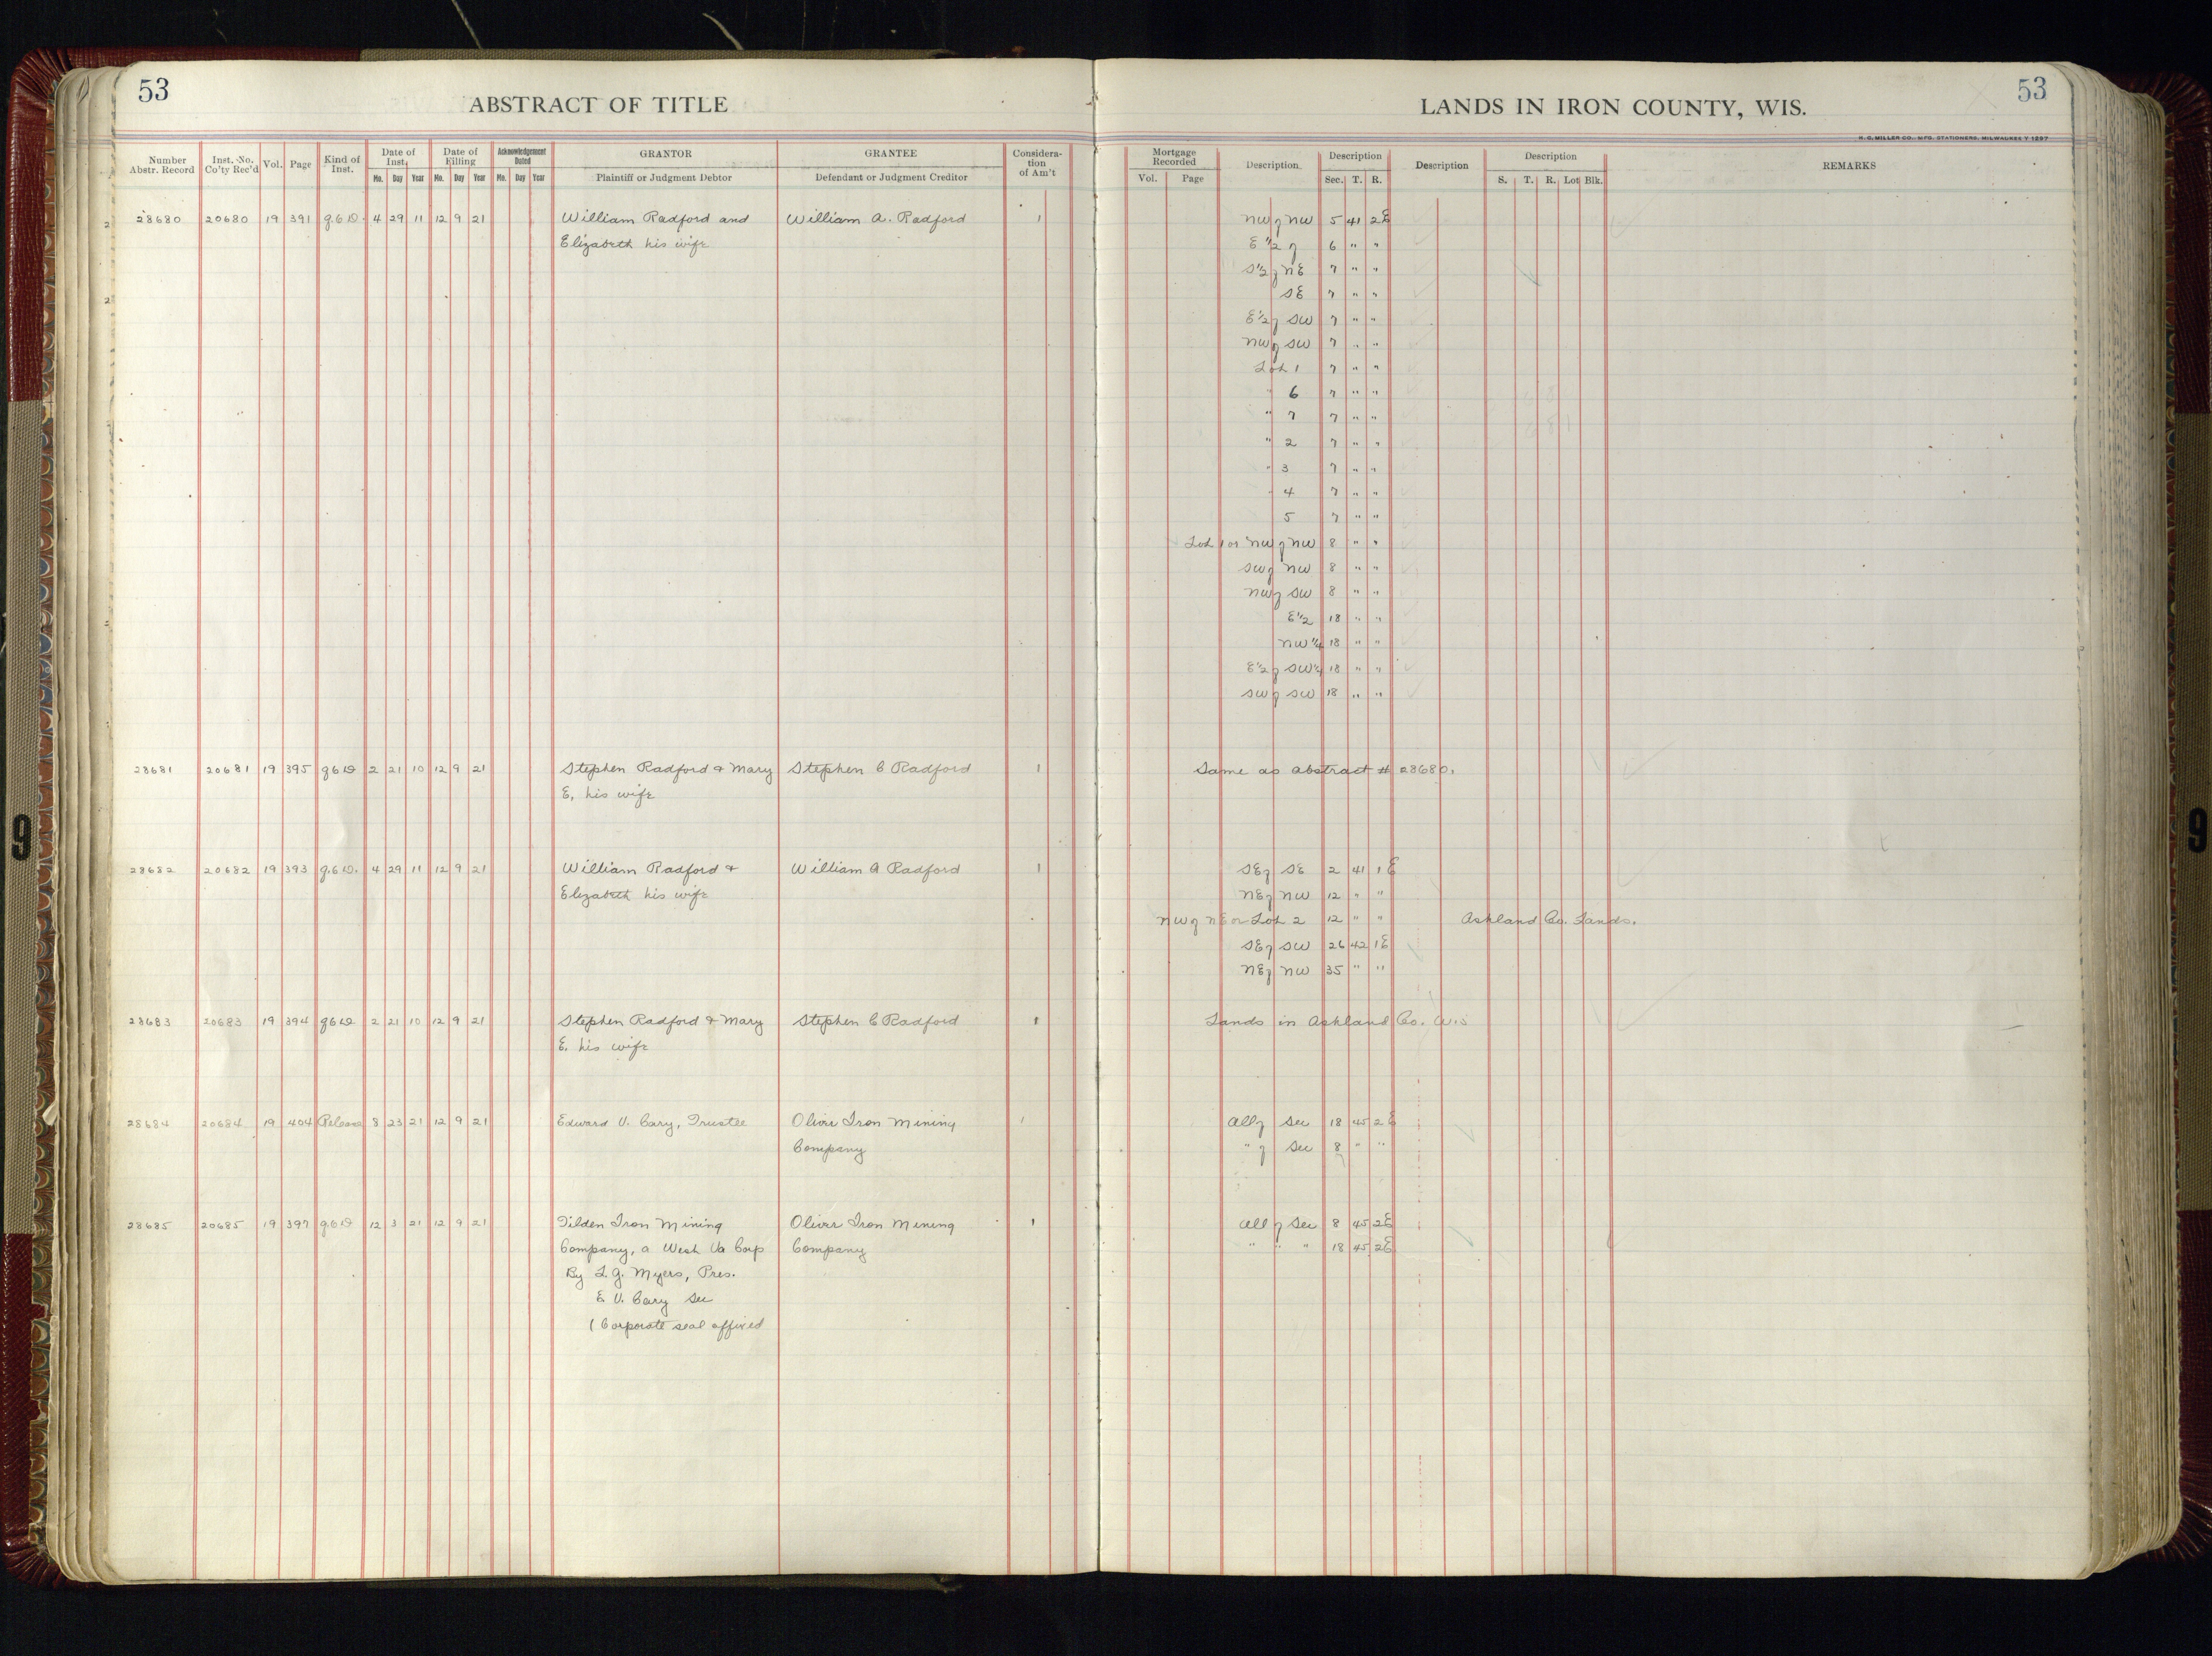 53
ABSTRACT OF TITLE
LANDS IN IRON COUNTY, WIS.
53
H. C. MILLER CO., MFG. STATIONERS, MILWAUKEE Y 1297
Number Abstr. Record Inst. No. Co'ty Rec'd Vol. Page Kind of Inst. Date of Inst. Mo. Day Year Date of Filling Mo. Day Year Acknowledgement Dated Mo. Day Year GRANTOR Plaintiff or Judgment Debtor GRANTEE Defendant or Judgment Creditor Considera-tion of Am't Mortgage Recorded Vol. Page Description Description Sec. T. R. Description Description S. T. R. Lot Blk. REMARKS
28680 20680 19 391 Q.C.D. 4 29 11 12 9 21 William Radford and William A. Radford 1 NW of NW 5 41 2E
Elizabeth his wife E 1/2 of 6 " "
S 1/2 of NE 7 " "
SE 7 " "
E 1/2 of SW 7 " "
NW of SW 7 " "
Lot 1 7 " "
" 6 7 " "
" 7 7 " "
" 2 7 " "
" 3 7 " "
" 4 7 " "
5 7 " "
Lot 1 or NW of NW 8 " "
SW of NW 8 " "
NW of SW 8 " "
E 1/2 18 " "
NW 1/4 18 " "
E 1/2 of SW 1/4 18 " "
SW of SW 18 " "
28681 20681 19 395 Q C D 2 21 10 12 9 21 Stephen Radford & Mary Stephen C Radford 1 Same as abstract # 28680.
E. his wife
28682 20682 19 393 Q.C.D. 4 29 11 12 9 21 William Radford & William A Radford 1 SE of SE 2 41 1E
Elizabeth his wife NE of NW 12 " "
NW of NE or Lot 2 12 " " Ashland Co. Lands.
SE of SW 26 42 1E
NE of NW 35 " "
28683 20683 19 394 Q C D 2 21 10 12 9 21 Stephen Radford & Mary Stephen C Radford 1 Lands in Ashland Co. Wis
E. his wife
28684 20684 19 404 Release 8 23 21 12 9 21 Edward V. Cary, Trustee Oliver Iron Mining 1 All of Sec 18 45 2E
Company " of Sec 8 " "
28685 20685 19 397 Q C D 12 3 21 12 9 21 Tilden Iron Mining Oliver Iron Mining 1 All of Sec 8 45 2E
Company, a West Va Corp Company " " " 18 45 2E
By L. G. Myers, Pres.
E. V. Cary Sec
( Corporate seal affixed
9
9